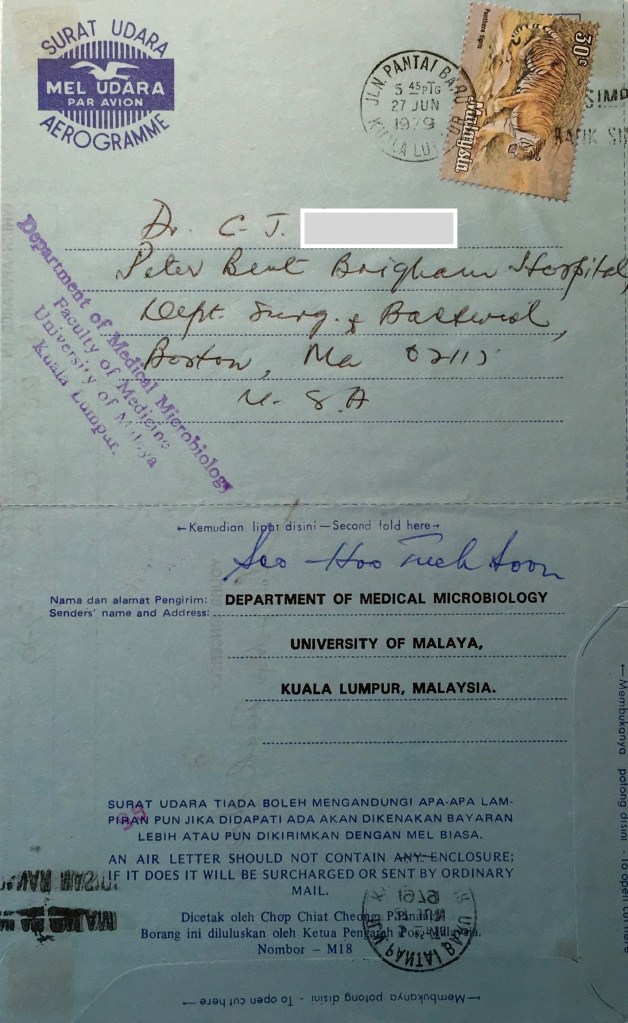 SURAT UDARA
MEL UDARA
PAR AVION
AEROGRAMME
JLN. PANTAI BARU
5 45 PTG
27 JUN
1979
KUALA LUMPUR
Panthera tigris
30c
Malaysia
Dr. C. J.
Peter Bent Brigham Hospital,
Dept. Surg. &
Boston, Ma 02115
U. S. A
Department of Medical Microbiology
Faculty of Medicine
University of Malaya
Kuala Lumpur.
←Kemudian lipat disini—Second fold here→
Soo-Hoo Tuck Soon
Nama dan alamat Pengirim:
Senders' name and Address:
DEPARTMENT OF MEDICAL MICROBIOLOGY
UNIVERSITY OF MALAYA,
KUALA LUMPUR, MALAYSIA.
SURAT UDARA TIADA BOLEH MENGANDUNGI APA-APA LAM-
PIRAN PUN JIKA DIDAPATI ADA AKAN DIKENAKAN BAYARAN
LEBIH ATAU PUN DIKIRIMKAN DENGAN MEL BIASA.
AN AIR LETTER SHOULD NOT CONTAIN ANY ENCLOSURE;
IF IT DOES IT WILL BE SURCHARGED OR SENT BY ORDINARY
MAIL.
Dicetak oleh Chop Chiat Cheong P.Pinang
Borang ini diluluskan oleh Ketua Pengarah Pos Malaysia.
Nombor — M18
←Membukanya potong disini - To open cut here→
←Membukanya potong disini - To open cut here